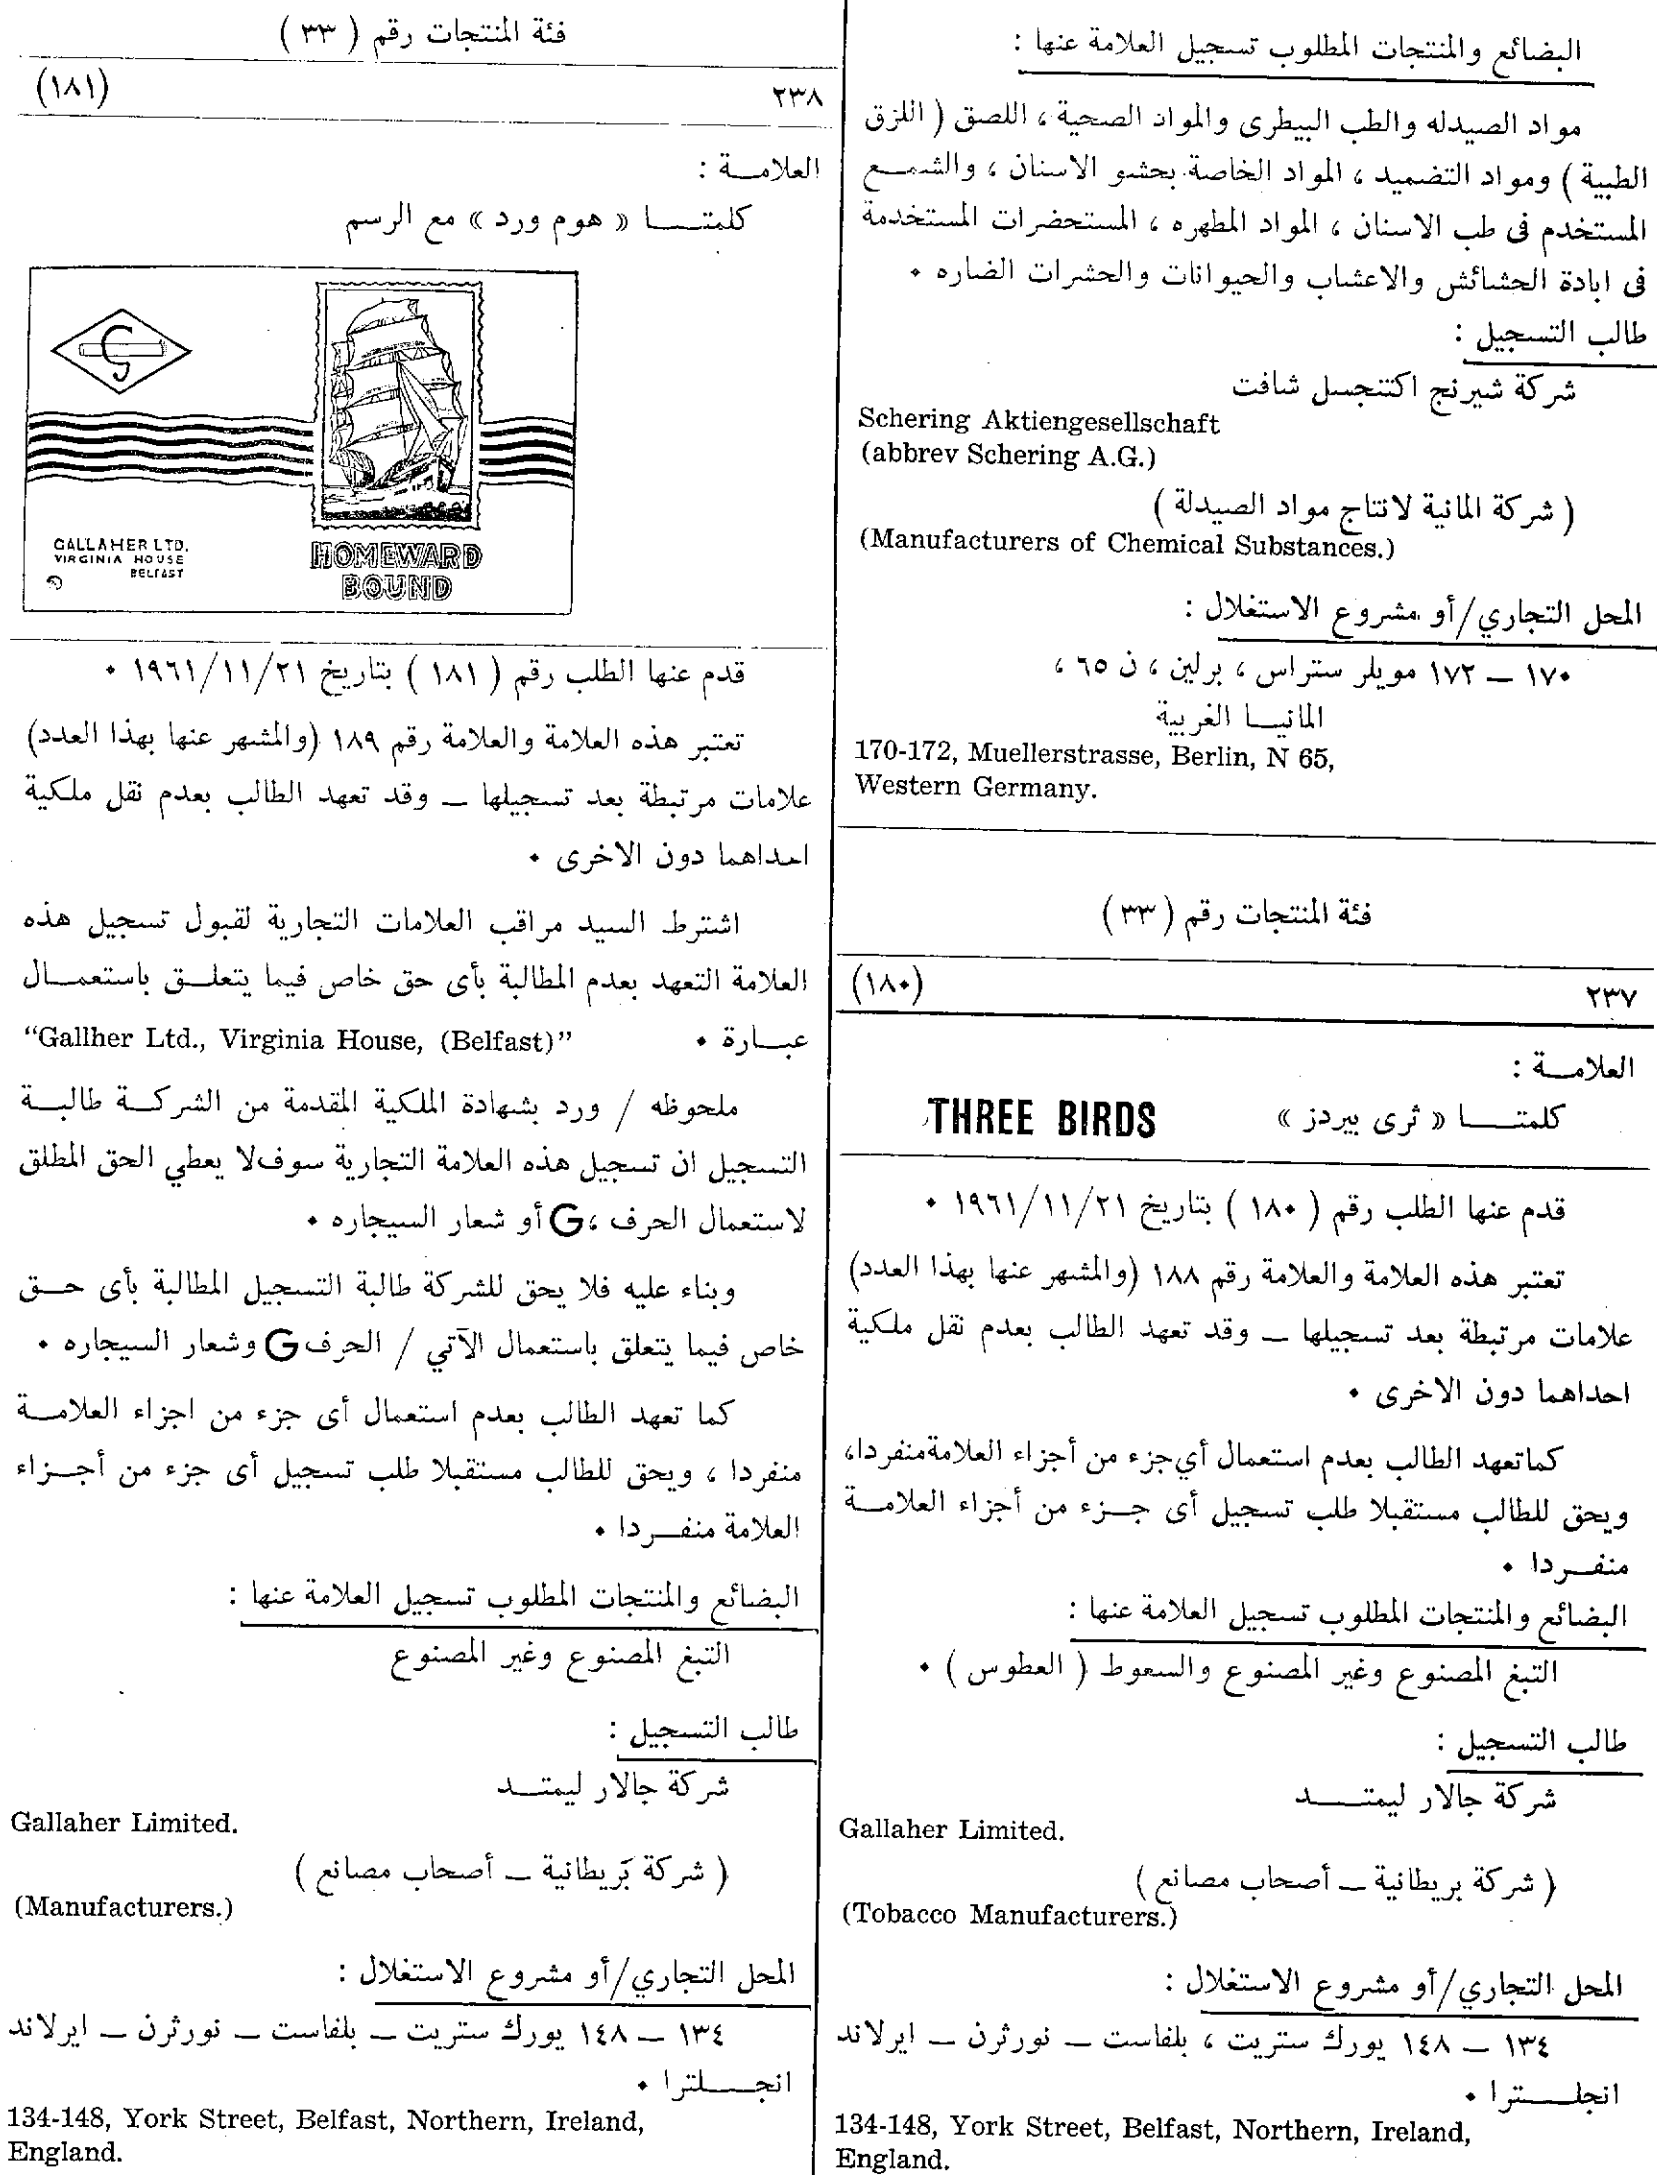 البضائع والمنتجات المطلوب تسجيل العلامة عنها :
مواد الصيدله والطب البيطرى والمواد الصحية ، اللصق ( اللزق
الطبية ) ومواد التضميد ، المواد الخاصة بحشو الاسنان ، والشمـع
المستخدم فى طب الاسنان ، المواد المطهره ، المستحضرات المستخدمة
فى ابادة الحشائش والاعشاب والحيوانات والحشرات الضاره ٠
طالب التسجيل :
شركة شيرنج اكتنجسل شافت
Schering Aktiengesellschaft
(abbrev Schering A.G.)
( شركة المانية لانتاج مواد الصيدلة )
(Manufacturers of Chemical Substances.)
المحل التجاري/أو مشروع الاستغلال :
١٧٠ ــ ١٧٢ مويلر ستراس ، برلين ، ن ٦٥ ،
المانيـا الغربية
170-172, Muellerstrasse, Berlin, N 65,
Western Germany.
فئة المنتجات رقم ( ٣٣ )
٢٣٧ (١٨٠)
العلامـة :
كلمتـا « ثرى بيردز » THREE BIRDS
قدم عنها الطلب رقم ( ١٨٠ ) بتاريخ ١٩٦١/١١/٢١ ٠
تعتبر هذه العلامة والعلامة رقم ١٨٨ (والمشهر عنها بهذا العدد)
علامات مرتبطة بعد تسجيلها ــ وقد تعهد الطالب بعدم نقل ملكية
احداهما دون الاخرى ٠
كماتعهد الطالب بعدم استعمال أي جزء من أجزاء العلامة منفردا،
ويحق للطالب مستقبلا طلب تسجيل أى جـزء من أجزاء العلامـة
منفـردا ٠
البضائع والمنتجات المطلوب تسجيل العلامة عنها :
التبغ المصنوع وغير المصنوع والسعوط ( العطوس ) ٠
طالب التسجيل :
شركة جالار ليمتـد
Gallaher Limited.
( شركة بريطانية ــ أصحاب مصانع )
(Tobacco Manufacturers.)
المحل التجاري/أو مشروع الاستغلال :
١٣٤ ــ ١٤٨ يورك ستريت ، بلفاست ــ نورثرن ــ ايرلاند
انجلـترا ٠
134-148, York Street, Belfast, Northern, Ireland,
England.
فئة المنتجات رقم ( ٣٣ )
٢٣٨ (١٨١)
العلامـة :
كلمتـا « هوم ورد » مع الرسم
G
GALLAHER LTD.
VIRGINIA HOUSE
BELFAST
HOMEWARD
BOUND
قدم عنها الطلب رقم ( ١٨١ ) بتاريخ ١٩٦١/١١/٢١ ٠
تعتبر هذه العلامة والعلامة رقم ١٨٩ (والمشهر عنها بهذا العدد)
علامات مرتبطة بعد تسجيلها ــ وقد تعهد الطالب بعدم نقل ملكية
احداهما دون الاخرى ٠
اشترط السيد مراقب العلامات التجارية لقبول تسجيل هذه
العلامة التعهد بعدم المطالبة بأى حق خاص فيما يتعلـق باستعمـال
عبـارة ٠ “Gallher Ltd., Virginia House, (Belfast)”
ملحوظه / ورد بشهادة الملكية المقدمة من الشركـة طالبـة
التسجيل ان تسجيل هذه العلامة التجارية سوف لا يعطي الحق المطلق
لاستعمال الحرف ،G أو شعار السيجاره ٠
وبناء عليه فلا يحق للشركة طالبة التسجيل المطالبة بأى حـق
خاص فيما يتعلق باستعمال الآتي / الحرف G وشعار السيجاره ٠
كما تعهد الطالب بعدم استعمال أى جزء من اجزاء العلامـة
منفردا ، ويحق للطالب مستقبلا طلب تسجيل أى جزء من أجـزاء
العلامة منفـردا ٠
البضائع والمنتجات المطلوب تسجيل العلامة عنها :
التبغ المصنوع وغير المصنوع
طالب التسجيل :
شركة جالار ليمتـد
Gallaher Limited.
( شركة بريطانية ــ أصحاب مصانع )
(Manufacturers.)
المحل التجاري/أو مشروع الاستغلال :
١٣٤ ــ ١٤٨ يورك ستريت ــ بلفاست ــ نورثرن ــ ايرلاند
انجـلترا ٠
134-148, York Street, Belfast, Northern, Ireland,
England.